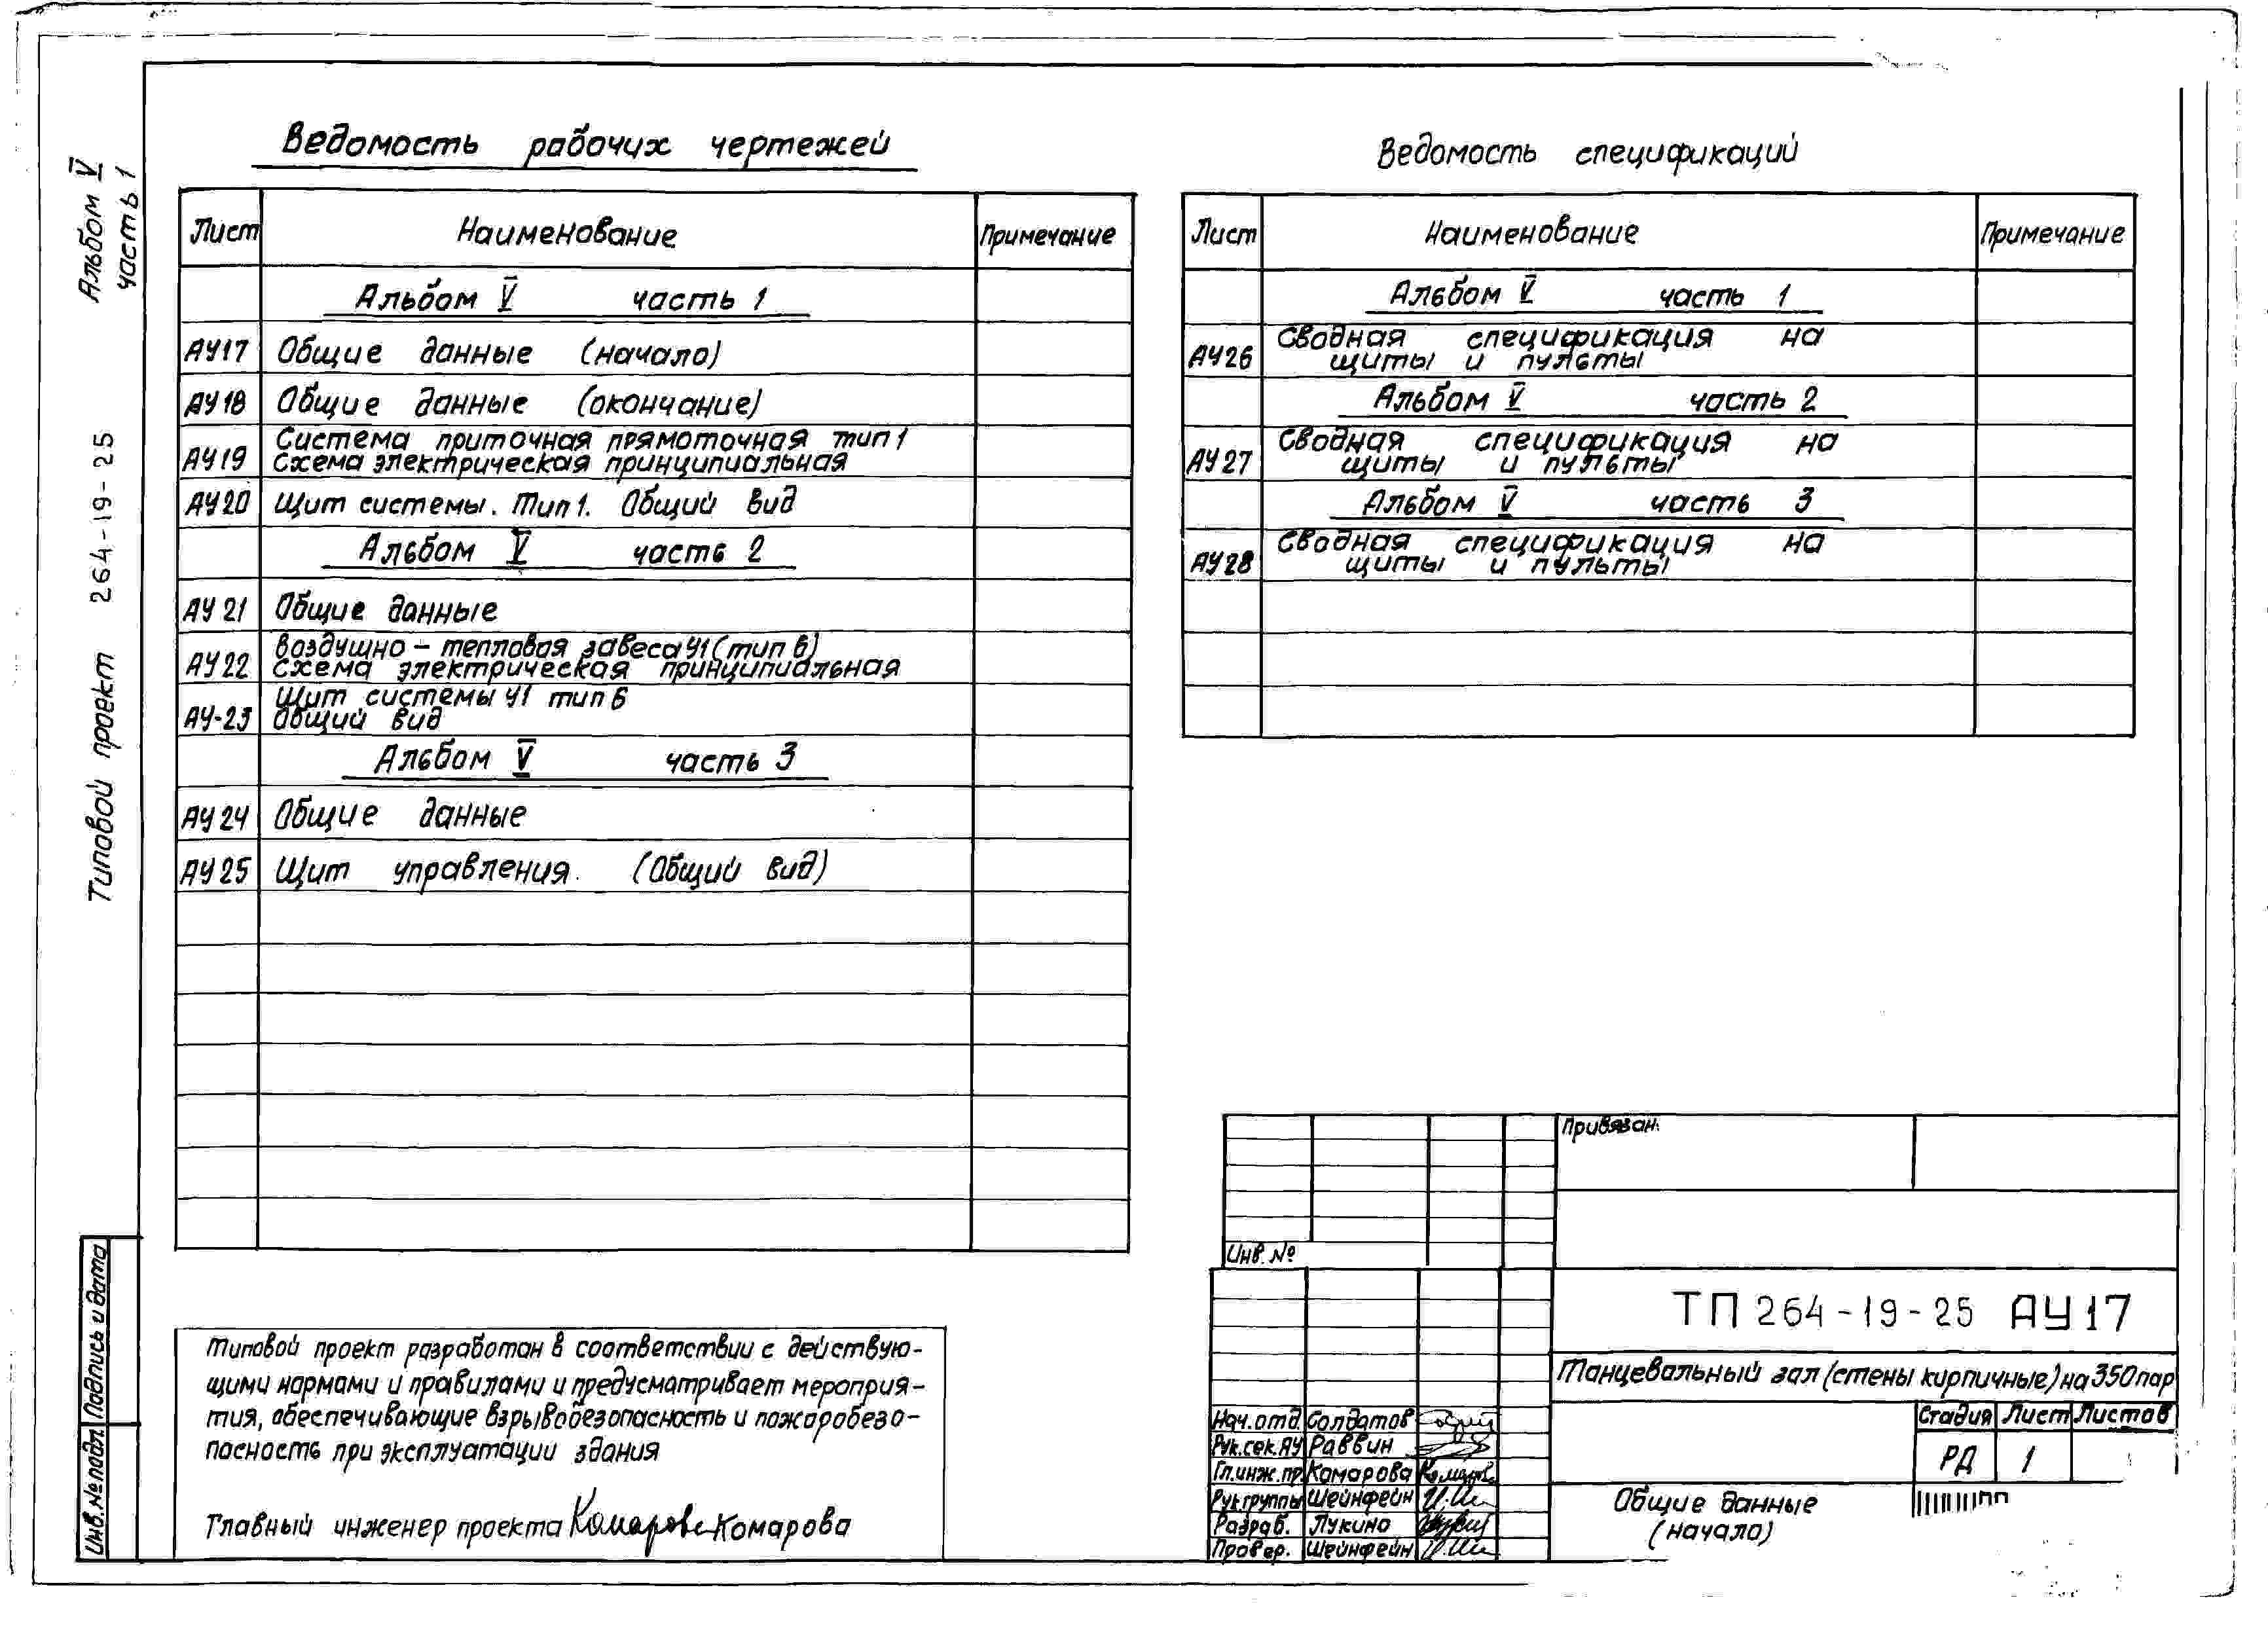 Альбом V
часть 1
Типовой проект 264-19-25
Ведомость рабочих чертежей
Лист Наименование Примечание
Альбом V часть 1
АУ17 Общие данные (начало)
АУ18 Общие данные (окончание)
Система приточная прямоточная тип 1
АУ19 Схема электрическая принципиальная
АУ20 Щит системы. Тип 1. Общий вид
Альбом V часть 2
АУ21 Общие данные
Воздушно-тепловая завеса У1 (тип 6)
АУ22 Схема электрическая принципиальная
Щит системы У1 тип 6
АУ-23 Общий вид
Альбом V часть 3
АУ24 Общие данные
АУ25 Щит управления. (Общий вид)
Ведомость спецификаций
Лист Наименование Примечание
Альбом V часть 1
Сводная спецификация на
АУ26 щиты и пульты
Альбом V часть 2
Сводная спецификация на
АУ27 щиты и пульты
Альбом V часть 3
Сводная спецификация на
АУ28 щиты и пульты
Типовой проект разработан в соответствии с действую-
щими нормами и правилами и предусматривает мероприя-
тия, обеспечивающие взрывобезопасность и пожаробезо-
пасность при эксплуатации здания
Главный инженер проекта Комарова Комарова
Инв. № подл Подпись и дата
Привязан:
Инв. №
ТП 264-19-25 АУ17
Танцевальный зал (стены кирпичные) на 350 пар
Стадия Лист Листов
РД 1
Общие данные
(начало)
Нач. отд. Солдатов
Рук. сек. АУ Раввин
Гл. инж. пр. Комарова
Рук. группы Шейнфейн
Разраб. Лукино
Провер. Шейнфейн